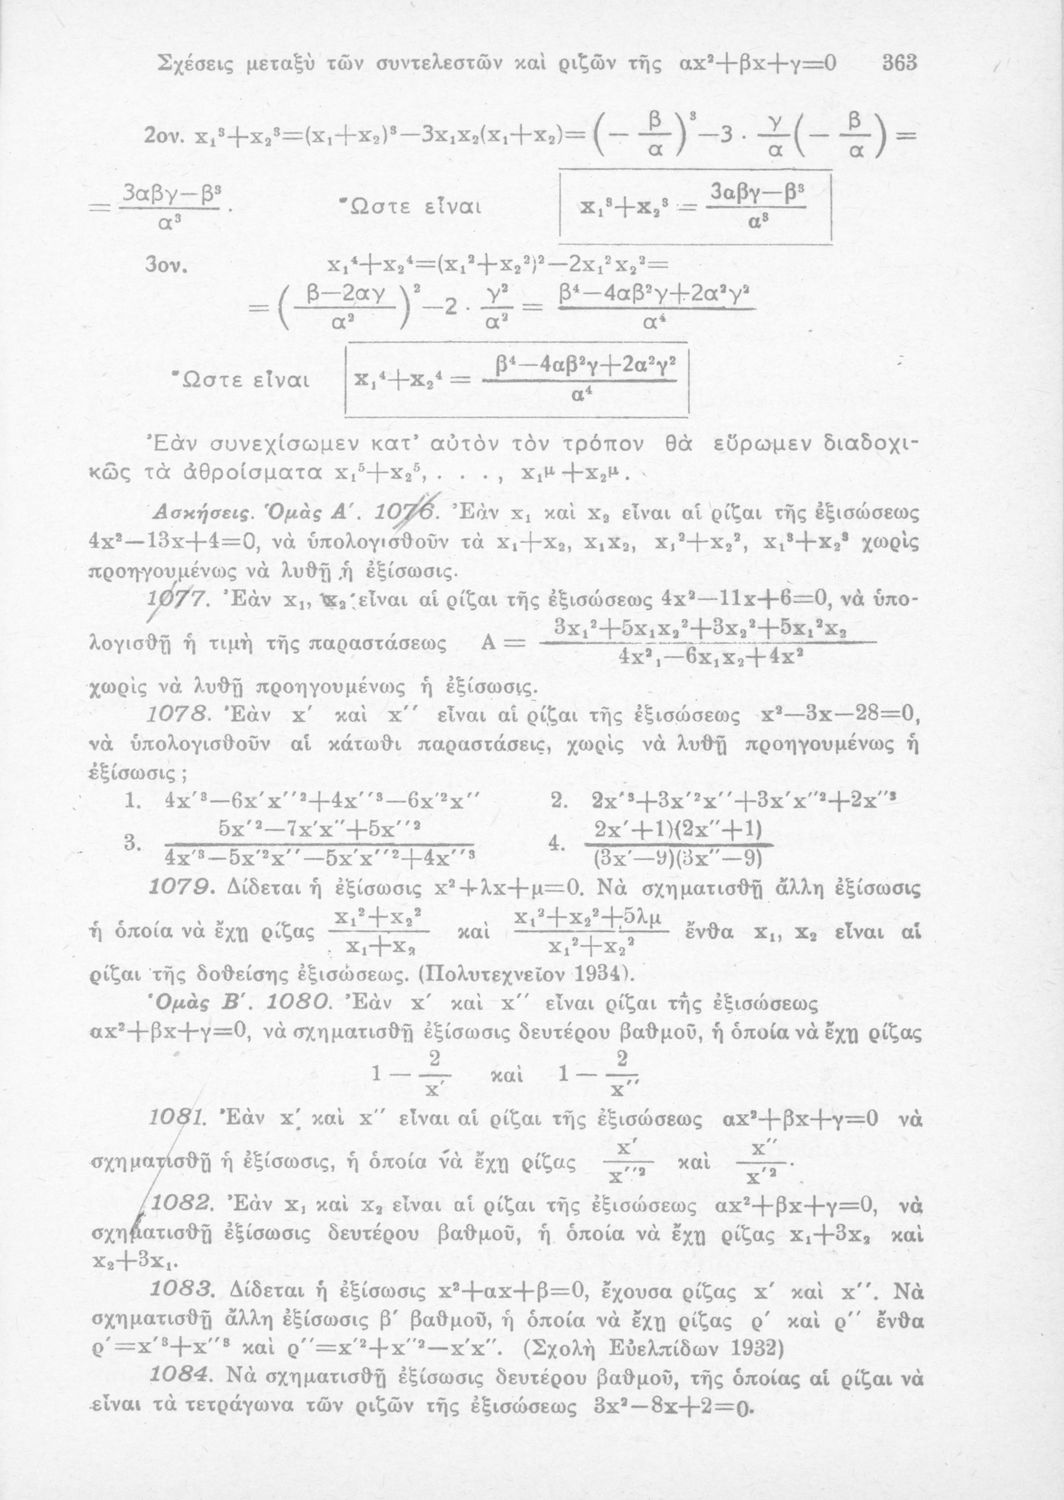 Σχέσεις μεταξὺ τῶν συντελεστῶν καὶ ριζῶν τῆς αx²+βx+γ=0 363
2ον. x₁³+x₂³=(x₁+x₂)³—3x₁x₂(x₁+x₂)=(— β/α)³—3 · γ/α(— β/α) =
= 3αβγ—β³/α³ · Ὥστε εἶναι x₁³+x₂³ = 3αβγ—β³/α³
3ον. x₁⁴+x₂⁴=(x₁²+x₂²)²—2x₁²x₂²=
=(β—2αγ/α²)²—2 · γ²/α² = β⁴—4αβ²γ+2α²γ²/α⁴
Ὥστε εἶναι x₁⁴+x₂⁴ = β⁴—4αβ²γ+2α²γ²/α⁴
Ἐὰν συνεχίσωμεν κατ’ αὐτὸν τὸν τρόπον θὰ εὕρωμεν διαδοχι-
κῶς τὰ ἀθροίσματα x₁⁵+x₂⁵, . . . , x₁μ+x₂μ.
Ἀσκήσεις. Ὁμὰς Α΄. 1076. Ἐὰν x₁ καὶ x₂ εἶναι αἱ ρίζαι τῆς ἐξισώσεως
4x²—13x+4=0, νὰ ὑπολογισθοῦν τὰ x₁+x₂, x₁x₂, x₁²+x₂², x₁³+x₂³ χωρὶς
προηγουμένως νὰ λυθῇ ἡ ἐξίσωσις.
1077. Ἐὰν x₁, x₂ εἶναι αἱ ρίζαι τῆς ἐξισώσεως 4x²—11x+6=0, νὰ ὑπο-
λογισθῇ ἡ τιμὴ τῆς παραστάσεως Α = 3x₁²+5x₁x₂²+3x₂²+5x₁²x₂/4x²₁—6x₁x₂+4x²
χωρὶς νὰ λυθῇ προηγουμένως ἡ ἐξίσωσις.
1078. Ἐὰν x΄ καὶ x΄΄ εἶναι αἱ ρίζαι τῆς ἐξισώσεως x²—3x—28=0,
νὰ ὑπολογισθοῦν αἱ κάτωθι παραστάσεις, χωρὶς νὰ λυθῇ προηγουμένως ἡ
ἐξίσωσις ;
1. 4x΄³—6x΄x΄΄²+4x΄΄³—6x΄²x΄΄ 2. 2x΄³+3x΄²x΄΄+3x΄x΄΄²+2x΄΄³
3. 5x΄²—7x΄x΄΄+5x΄΄²/4x΄³—5x΄²x΄΄—5x΄x΄΄²+4x΄΄³ 4. 2x΄+1)(2x΄΄+1)/(3x΄—9)(3x΄΄—9)
1079. Δίδεται ἡ ἐξίσωσις x²+λx+μ=0. Νὰ σχηματισθῇ ἄλλη ἐξίσωσις
ἡ ὁποία νὰ ἔχῃ ρίζας x₁²+x₂²/x₁+x₂ καὶ x₁²+x₂²+5λμ/x₁²+x₂² ἔνθα x₁, x₂ εἶναι αἱ
ρίζαι τῆς δοθείσης ἐξισώσεως. (Πολυτεχνεῖον 1934).
Ὁμὰς Β΄. 1080. Ἐὰν x΄ καὶ x΄΄ εἶναι ρίζαι τῆς ἐξισώσεως
αx²+βx+γ=0, νὰ σχηματισθῇ ἐξίσωσις δευτέρου βαθμοῦ, ἡ ὁποία νὰ ἔχῃ ρίζας
1 — 2/x΄ καὶ 1 — 2/x΄΄
1081. Ἐὰν x΄ καὶ x΄΄ εἶναι αἱ ρίζαι τῆς ἐξισώσεως αx²+βx+γ=0 νὰ
σχηματισθῇ ἡ ἐξίσωσις, ἡ ὁποία νὰ ἔχῃ ρίζας x΄/x΄΄² καὶ x΄΄/x΄².
1082. Ἐὰν x₁ καὶ x₂ εἶναι αἱ ρίζαι τῆς ἐξισώσεως αx²+βx+γ=0, νὰ
σχηματισθῇ ἐξίσωσις δευτέρου βαθμοῦ, ἡ ὁποία νὰ ἔχῃ ρίζας x₁+3x₂ καὶ
x₂+3x₁.
1083. Δίδεται ἡ ἐξίσωσις x²+αx+β=0, ἔχουσα ρίζας x΄ καὶ x΄΄. Νὰ
σχηματισθῇ ἄλλη ἐξίσωσις β΄ βαθμοῦ, ἡ ὁποία νὰ ἔχῃ ρίζας ρ΄ καὶ ρ΄΄ ἔνθα
ρ΄=x΄³+x΄΄³ καὶ ρ΄΄=x΄²+x΄΄²—x΄x΄΄. (Σχολὴ Εὐελπίδων 1932)
1084. Νὰ σχηματισθῇ ἐξίσωσις δευτέρου βαθμοῦ, τῆς ὁποίας αἱ ρίζαι νὰ
εἶναι τὰ τετράγωνα τῶν ριζῶν τῆς ἐξισώσεως 3x²—8x+2=0.